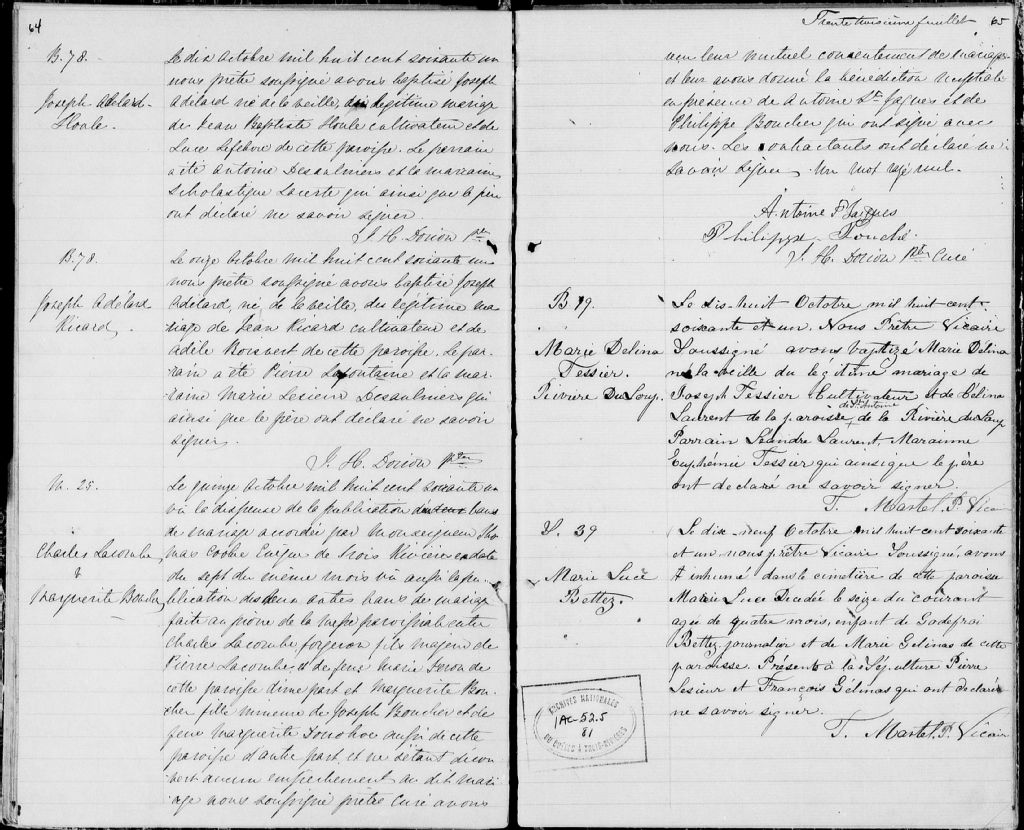 64
B. 78.
Joseph Adélard
Houle.
Le dix Octobre mil huit cent soixante un
nous prêtre soussigné avons baptisé Joseph
Adélard né de la veille, du légitime mariage
de Jean Baptiste Houle cultivateur et de
Luce Lefebvre de cette paroisse. Le parrain
a été Antoine Desaulniers et la marraine
Scholastique Lacerte qui ainsi que le père
ont déclaré ne savoir signer.
J. H. Dorion Ptre
B. 78.
Joseph Adélard
Ricard
Le onze Octobre mil huit cent soixante un
nous prêtre soussigné avons baptisé Joseph
Adélard, né, de la veille, du légitime ma-
riage de Jean Ricard cultivateur et de
Adèle Boisvert de cette paroisse. Le par-
rain a été Pierre Lafontaine et la mar-
raine Marie Lesieur Desaulniers qui
ainsi que le père ont déclaré ne savoir
signer.
J. H. Dorion Ptre
M. 25.
Charles Lacombe
&
Marguerite Boucher
Le quinze Octobre mil huit cent soixante un
vû la dispense de la publication bans
de mariage accordée par Monseigneur Tho-
mas Cooke Evêque de Trois Rivières en date
du sept du même mois vû aussi la pu-
blication des deux autres bans de mariage
faite au prône de la messe paroissiale entre
Charles Lacombe forgeron fils majeur de
Pierre Lacombe et de feue Marie de
cette paroisse d'une part et Marguerite Bou-
cher fille mineure de Joseph Boucher et de
feue Marguerite Donohoe aussi de cette
paroisse d'autre part, et ne s'étant décou-
vert aucun empêchement au dit mari-
age nous soussigné prêtre Curé avons
Trente troisième feuillet 65
reçu leur mutuel consentement de mariage
et leur avons donné la bénédiction nuptiale
en présence de Antoine St. Jaques et de
Philippe Boucher qui ont signé avec
nous. Les contractants ont déclaré ne
savoir signer. Un mot rayé nul.
Antoine St Jaques
Philippe Bouché
J. H. Dorion Ptre Curé
B 79.
Marie Delina
Tessier.
Rivière Du Loup.
Le dis-huit Octobre mil huit cent
soixante et un. Nous Prêtre Vicaire
Soussigné avons baptizé Marie Délina
née la veille du légitime mariage de
Joseph Tessier Cultivateur et de Célina
Laurent de la paroisse, de St. Antoine de la Rivière du Loup
Parrain Léandre Laurent, Maraine
Euphémie Tessier qui ainsi que le père
ont déclaré ne savoir signer.
T. Martel. P. Vicaire
S. 39
Marie Luce
Bettez.
Le dix-neuf Octobre mil huit cent soixante
et un nous prêtre Vicaire Soussigné avons
inhumé dans le cimetière de cette paroisse
Marie Luce Décédée le seize du courant
agée de quatre mois, enfant de Godefroi
Bettez journalier et de Marie Gélinas de cette
paroisse. Présents à la Sépulture Pierre
Lesieur et François Gélinas qui ont déclaré
ne savoir signer.
T. Martel. P. Vicaire
ARCHIVES NATIONALES
1AC-52.5
81
DU QUÉBEC À TROIS-RIVIÈRES